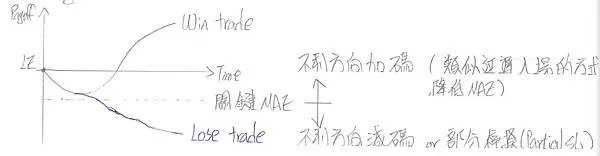 Payoff
Win trade
IZ
Time
關鍵 MAE
Lose trade
不利方向加碼 (類似延遲入場的方式
降低MAE)
不利方向減碼 or 部分停損(Partial SL)